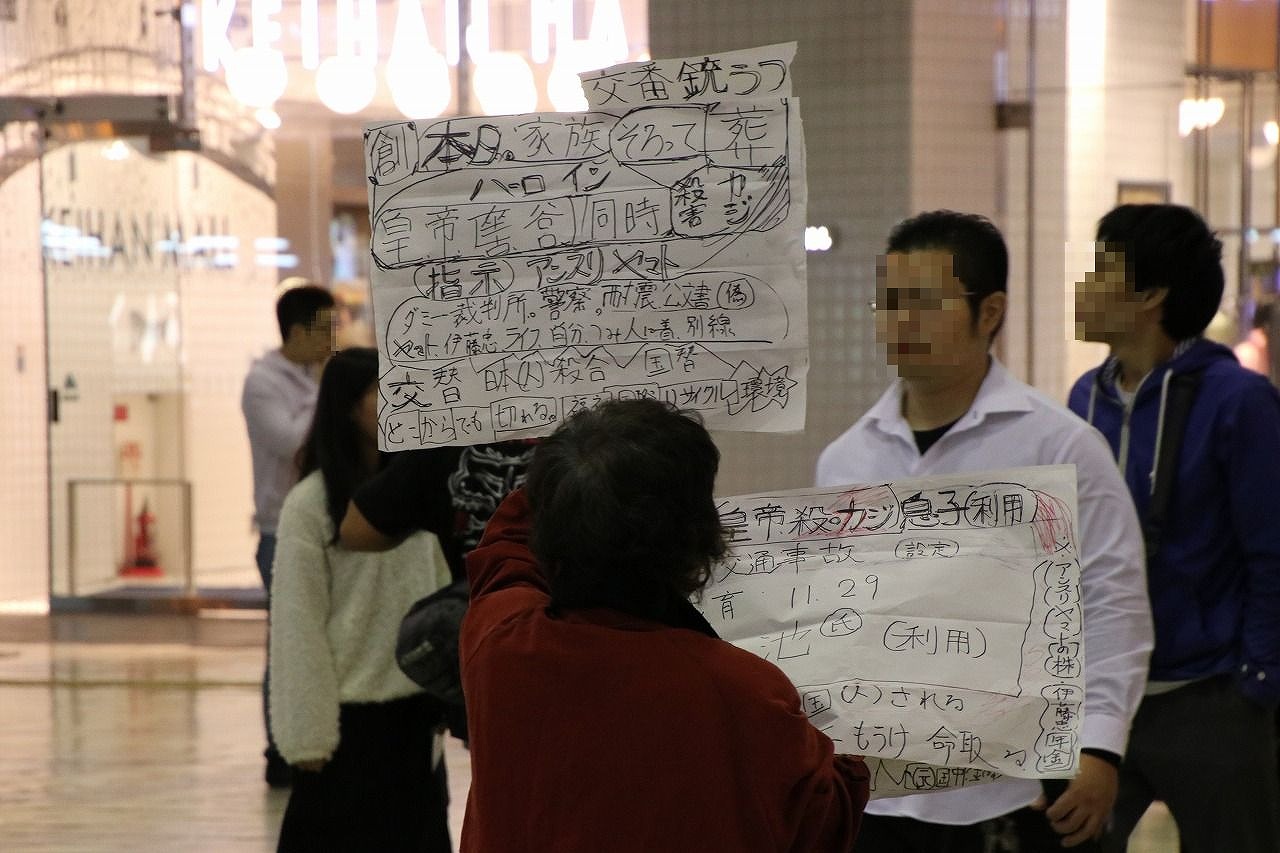 KEIHAN
交番銃うつ
創 家族 そろって 葬
ハーロイン
皇帝 谷 同時 殺害 カジ
指示 アンスリ ヤマト
ダミー裁判所。警察。耐震公文書(偽)
ヤマト、伊藤忠、ライフ、自分、つみ人に着、別線
交替 日本(人)殺合 国替
どこからでも 切れる。 国際リサイクル 環境
皇帝殺。カジ 息子(利用)
交通事故 (設定)
育 11. 29
池 氏 (利用)
国(人)される
もうけ 命取る。
アンスリヤマトの株 伊藤忠